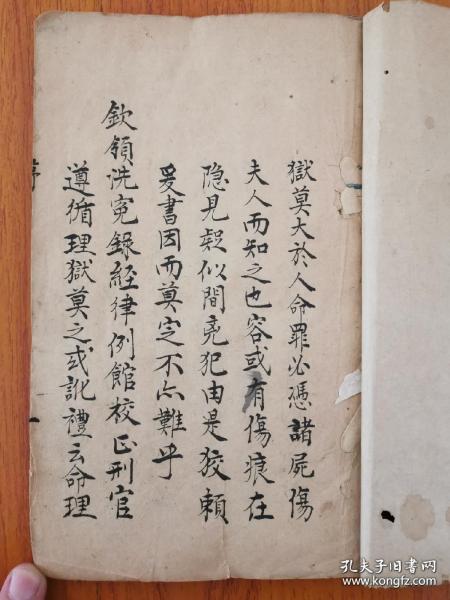 獄莫大於人命罪必憑諸屍傷
夫人而知之也容或有傷痕在
隐見疑似間兇犯由是狡賴
爰書因而莫定不亦難乎
欽頒洗冤錄經律例館校正刑官
遵循理獄莫之或訛禮云命理
序
孔夫子旧书网
www.kongfz.com